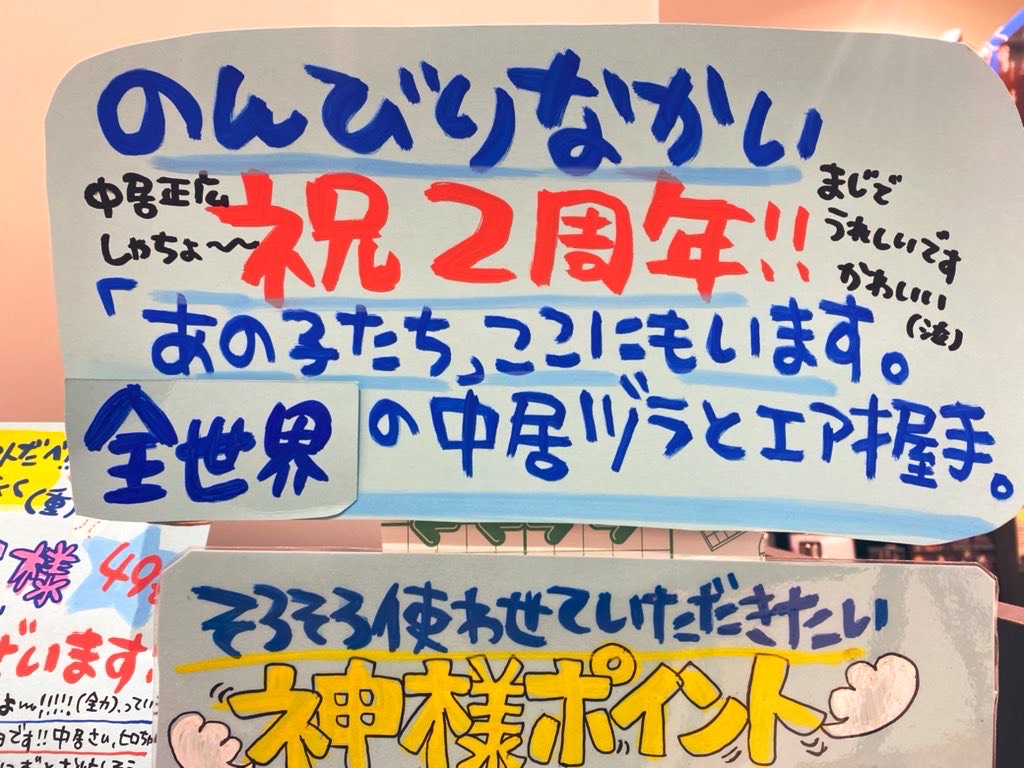 のんびりなかい
中居正広
しゃちょ〜〜
祝2周年!!
まじで
うれしいです
かわいい
(泣)
「あの子たち、ここにもいます。
全世界の中居ヅラとエア握手。
そろそろ使わせていただきたい
神様ポイント
様
います
(全力)、ってい
です!!中居さん、ヒロちゃ